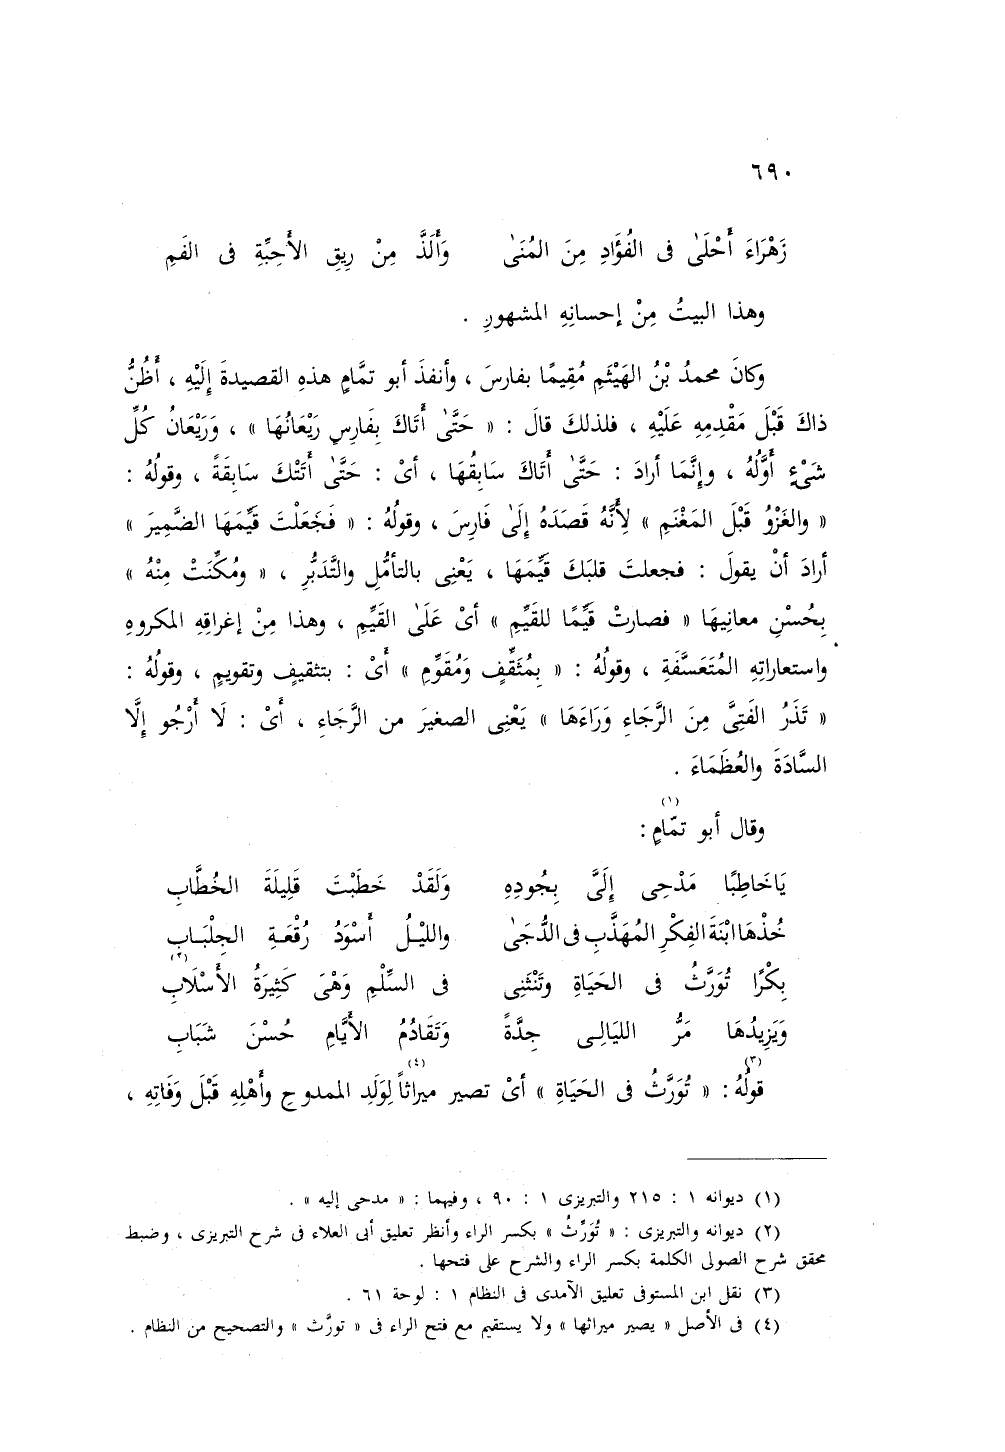 ٦٩٠
زَهْرَاءَ أَحْلَىٰ فى الفُؤَادِ مِنَ المُنَىٰ وَأَلَذَّ مِنْ رِيقِ الأَحِبَّةِ فى الفَمِ
وهذا البيتُ مِنْ إحسانِهِ المشهورِ .
وكانَ محمدُ بْنُ الهَيْثَمِ مُقِيمًا بفارسَ ، وأنفذَ أبو تمَّامٍ هذهِ القصيدةَ إِلَيْهِ ، أَظُنُّ
ذاكَ قَبْلَ مَقْدِمِهِ عَلَيْهِ ، فلذلكَ قالَ : « حَتَّىٰ أَتَاكَ بِفَارِسٍ رَيْعَانُهَا » ، وَرَيْعَانُ كُلِّ
شَىْءٍ أَوَّلُهُ ، وإِنَّمَا أرادَ : حَتَّىٰ أَتَاكَ سَابِقُهَا ، أىْ : حَتَّىٰ أَتَتْكَ سَابِقَةً ، وقولُهُ :
« والغَزْوُ قَبْلَ المَغْنَمِ » لِأَنَّهُ قَصَدَهُ إِلَىٰ فَارِسَ ، وقولُهُ : « فَجَعَلْتَ قَيِّمَهَا الضَّمِيرَ »
أرادَ أنْ يقولَ : فجعلتَ قلبَكَ قَيِّمَهَا ، يَعْنِى بالتأمُّلِ والتَّدَبُّرِ ، « ومُكِّنَتْ مِنْهُ »
بِحُسْنِ معانِيهَا « فصارتْ قَيِّمًا للقَيِّمِ » أىْ عَلَىٰ القَيِّمِ ، وهذا مِنْ إغراقِهِ المكروهِ
واستعاراتِهِ المُتَعَسَّفَةِ ، وقولُهُ : « بِمُثَقِّفٍ وَمُقَوِّمِ » أىْ : بتثقيفٍ وتقويمٍ ، وقولُهُ :
« تَذَرُ الفَتِىَّ مِنَ الرَّجَاءِ وَرَاءَهَا » يَعْنِى الصغيرَ من الرَّجَاءِ ، أىْ : لَا أَرْجُو إِلَّا
السَّادَةَ والعُظَمَاءَ .
وقال أبو تمّامٍ (١) :
يَاخَاطِبًا مَدْحِى إِلَىَّ بِجُودِهِ وَلَقَدْ خَطَبْتَ قَلِيلَةَ الخُطَّابِ
خُذْهَا ابْنَةَ الفِكْرِ المُهَذَّبِ فى الدُّجَىٰ والليْلُ أَسْوَدُ رُقْعَةِ الجِلْبَابِ
بِكْرًا تُوَرَّثُ فى الحَيَاةِ وَتَنْثَنِى فى السِّلْمِ وَهْىَ كَثِيرَةُ الأَسْلَابِ (٢)
وَيَزِيدُهَا مَرُّ الليَالِى جِدَّةً وَتَقَادُمُ الأَيَّامِ حُسْنَ شَبَابِ
قولُهُ (٣) : « تُوَرَّثُ فى الحَيَاةِ » أىْ تصير ميراثاً (٤) لِوَلَدِ الممدوحِ وأَهْلِهِ قَبْلَ وَفَاتِهِ ،
(١) ديوانه ١ : ٢١٥ والتبريزى ١ : ٩٠ ، وفيهما : « مدحى إليه » .
(٢) ديوانه والتبريزى : « تُوَرِّثُ » بكسر الراء وأنظر تعليق أبى العلاء فى شرح التبريزى ، وضبط
محقق شرح الصولى الكلمة بكسر الراء والشرح على فتحها .
(٣) نقل ابن المستوفى تعليق الآمدى فى النظام ١ : لوحة ٦١ .
(٤) فى الأصل « يصير ميراثها » ولا يستقيم مع فتح الراء فى « تورَّث » والتصحيح من النظام .